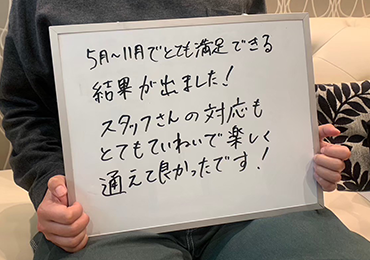 5月～11月でとても満足できる
結果が出ました!
スタッフさんの対応も
とてもていねいで楽しく
通えて良かったです!